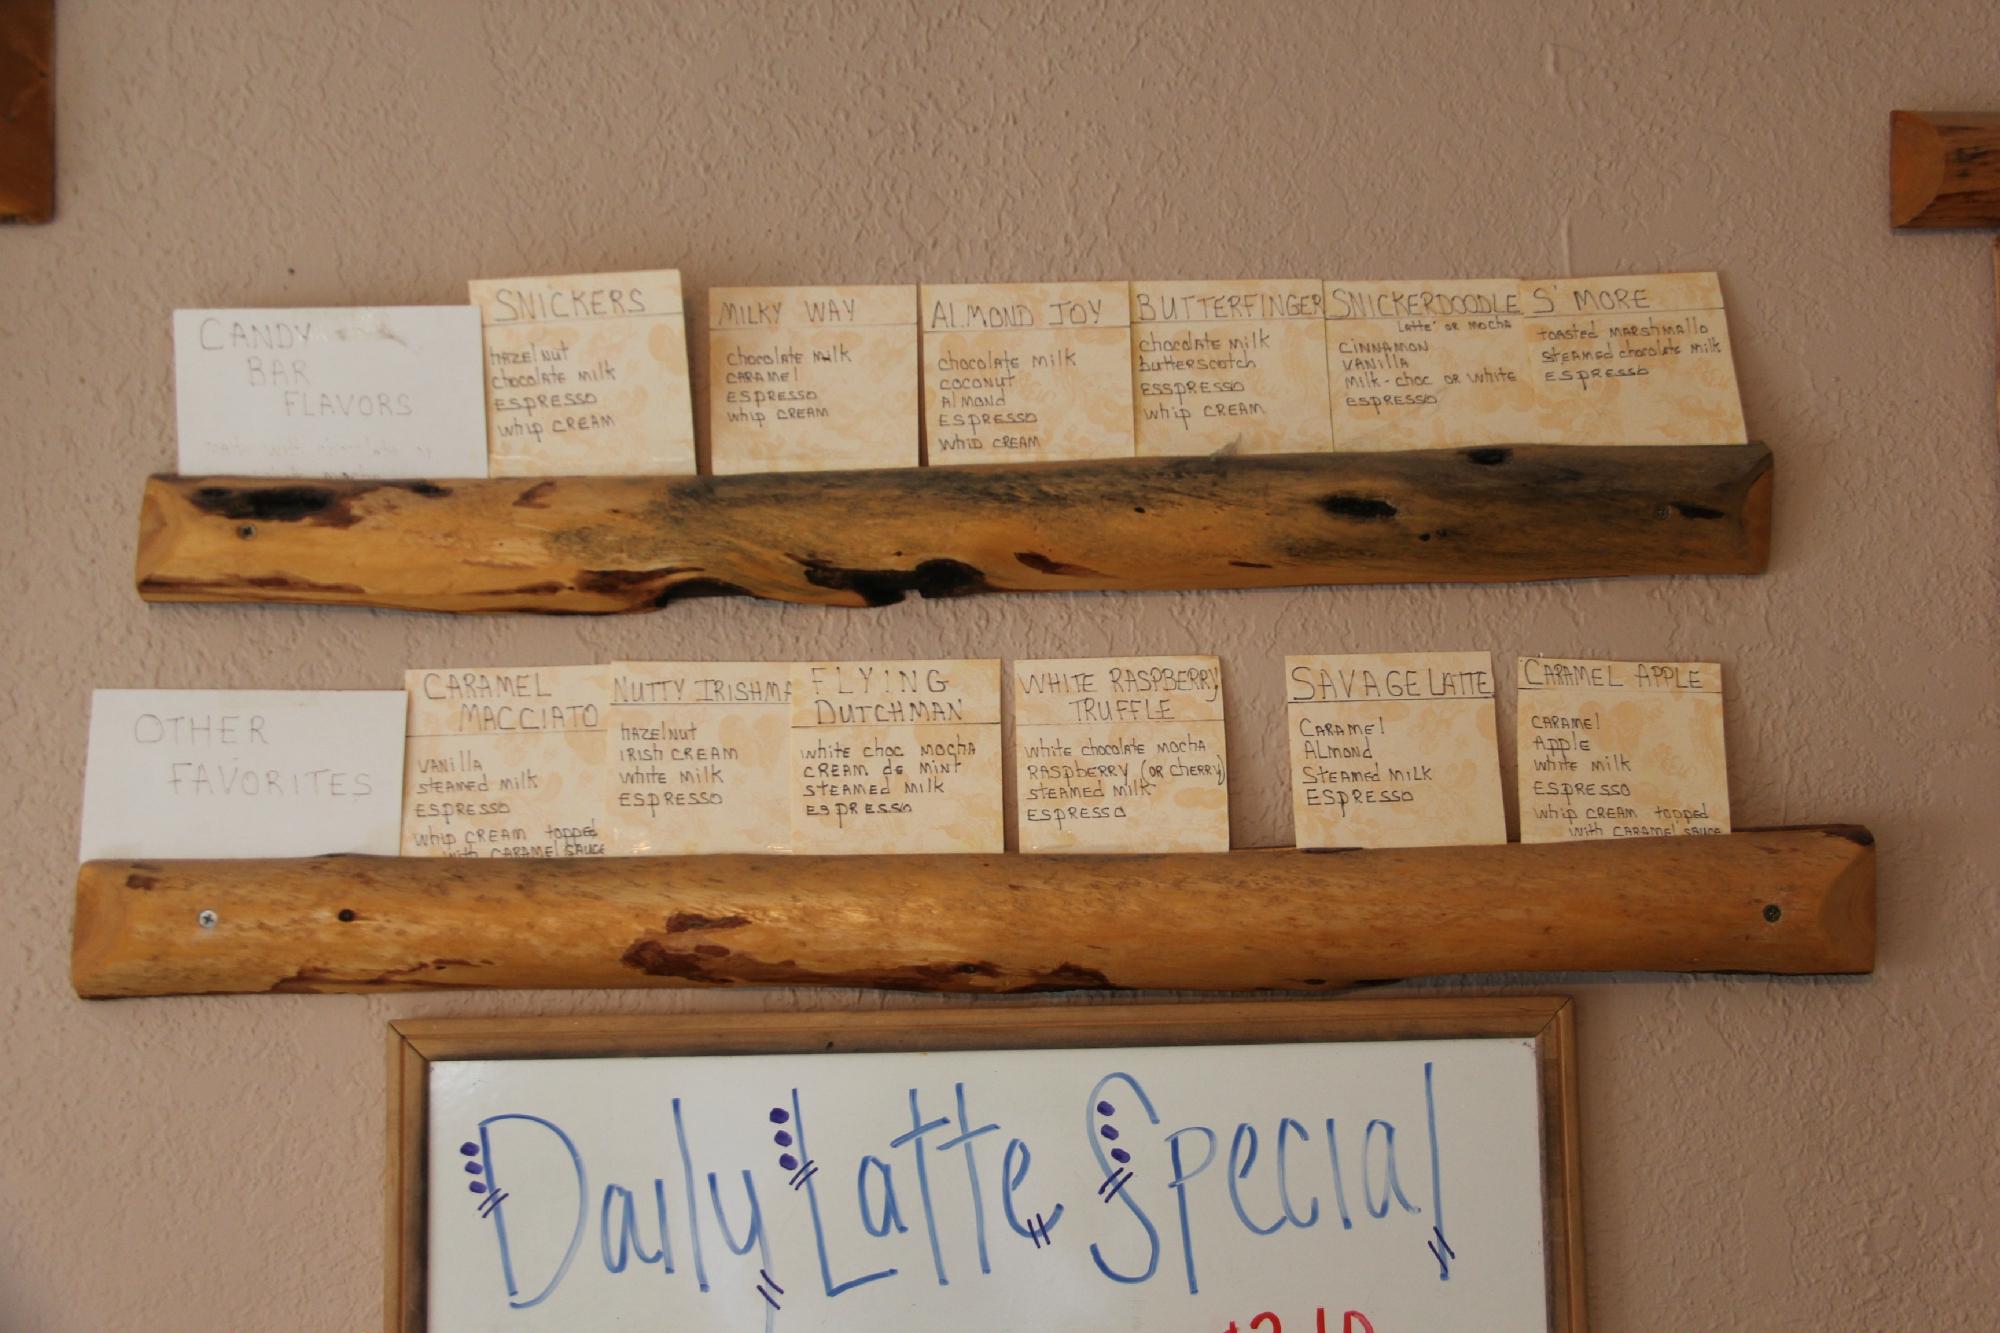 CANDY
BAR
FLAVORS
SNICKERS
hazelnut
chocolate milk
ESPRESSO
whip CREAM
MILKY WAY
chocolate milk
CARAMEl
ESPRESSO
whip CREAM
ALMOND JOY
chocolate milk
coconut
Almond
ESPRESSO
whip CREAM
BUTTERFINGER
chocolate milk
butterscotch
ESSPRESSO
whip CREAM
SNICKERDOODLE
Latte' OR MOCHA
CINNAMON
VANILLA
Milk - choc OR white
ESPRESSO
S'MORE
toasted MARShMAllo
STEAMEd chocolate milk
ESPRESSO
OTHER
FAVORITES
CARAMEL
MACCIATO
VANilla
STEAMEd milk
ESPRESSO
whip CREAM topped
with CARAMEl SAUCE
NUTTY IRISHMA
hazelnut
IRISH CREAM
white milk
ESPRESSO
FLYING
DUTCHMAN
white choc mocha
CREAM de MINT
STEAMEd milk
ESPRESSO
WHITE RASPBERRY
TRUFFLE
white chocolate mocha
RASpbERRY (OR chERRY)
STEAMEd milk
ESPRESSO
SAVAGE LATTE
CARAMEl
ALmond
STEAMEd MILK
ESPRESSO
CARAMEL APPLE
CARAMEl
Apple
white milk
ESPRESSO
Whip CREAM topped
with CARAMEl SAUCE
Daily Latte Special